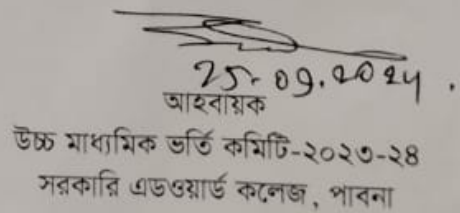 25.09.2024.
আহবায়ক
উচ্চ মাধ্যমিক ভর্তি কমিটি-২০২৩-২৪
সরকারি এডওয়ার্ড কলেজ, পাবনা